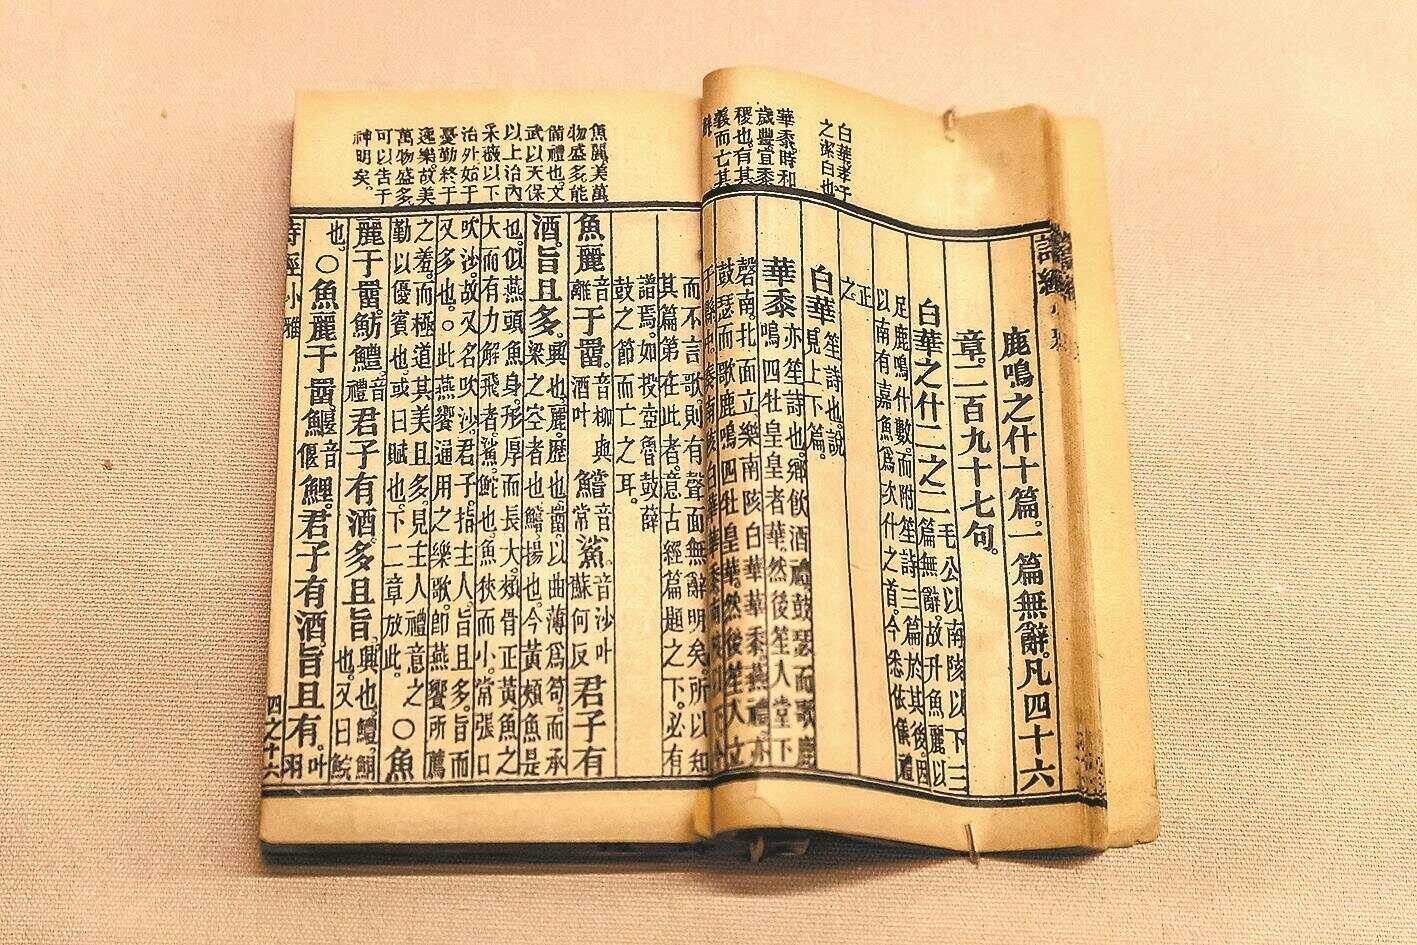 詩經
鹿鳴之什十篇。一篇無辭。凡四十六
章。二百九十七句。
白華之什二之二
毛公以南陔以下三
篇無辭。故升魚麗以
足鹿鳴什數。而附笙詩三篇於其後。因
以南有嘉魚爲次什之首。今悉依儀禮
正
之。
白華
笙詩也。說
見上下篇。
華黍
亦笙詩也。鄉飲酒禮。鼓瑟而歌鹿
鳴四牡皇皇者華。然後笙入堂下
磬南。北面立。樂南陔白華華黍。燕禮。亦
鼓瑟而歌鹿鳴四牡皇華。然後笙入立
白華。孝子
之潔白也。
華黍。時和
歲豐。宜黍
稷也。有其
義而亡其
而不言歌。則有聲而無辭明矣。所以知
其篇第在此者。意古經篇題之下。必有
譜焉。如投壺魯鼓薛
鼓之節而亡之耳。
魚麗音離于罶。音柳與酒叶鱨音常鯊。音沙叶蘇何反君子有
酒。旨且多。
興也。麗。歷也。罶。以曲薄爲笱。而承
梁之空者也。鱨。揚也。今黃頰魚是
也。似燕頭魚身。形厚而長大。頰骨正黃。魚之
大而有力解飛者。鯊。鮀也。魚狹而小。常張口
吹沙。故又名吹沙。君子。指主人。旨且多。旨而
又多也。○此燕饗通用之樂歌。即燕饗所薦
之羞。而極道其美且多。見主人禮意之
勤以優賓也。或曰賦也。下二章放此。○魚
麗于罶。魴鱧。音禮君子有酒。多且旨。興也。鱧。鮦
也。又曰鯇
也。○魚麗于罶。鰋音偃鯉。君子有酒。旨且有。叶羽
詩經小雅
四之十六
魚麗。美萬
物盛多。能
備禮也。文
武以天保
以上治內。
采薇以下
治外。始于
憂勤。終于
逸樂。故美
萬物盛多。
可以告于
神明矣。